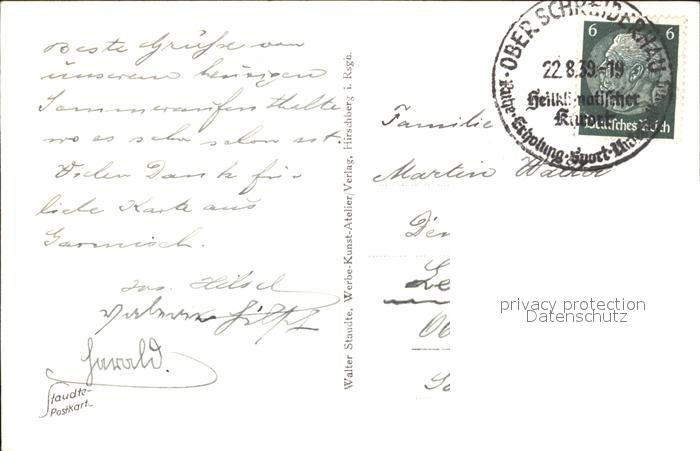 Beste Grüße von
unserem heurigen
Sommeraufenthalte
wo es sehr schön ist.
Vielen Dank für
liebe Karte aus
Garmisch.
Jos. Hilsch
Hilsch
Harald.
Staudte-
Postkart.
Walter Staudte, Werbe-Kunst-Atelier/Verlag, Hirschberg i. Rsgb.
Familie
Martin Walter
OBER SCHREIBERHAU
22.8.39-19
Heilklimatischer
Kurort
Ruhe·Erholung·Sport
6 6
Deutsches Reich
privacy protection
Datenschutz